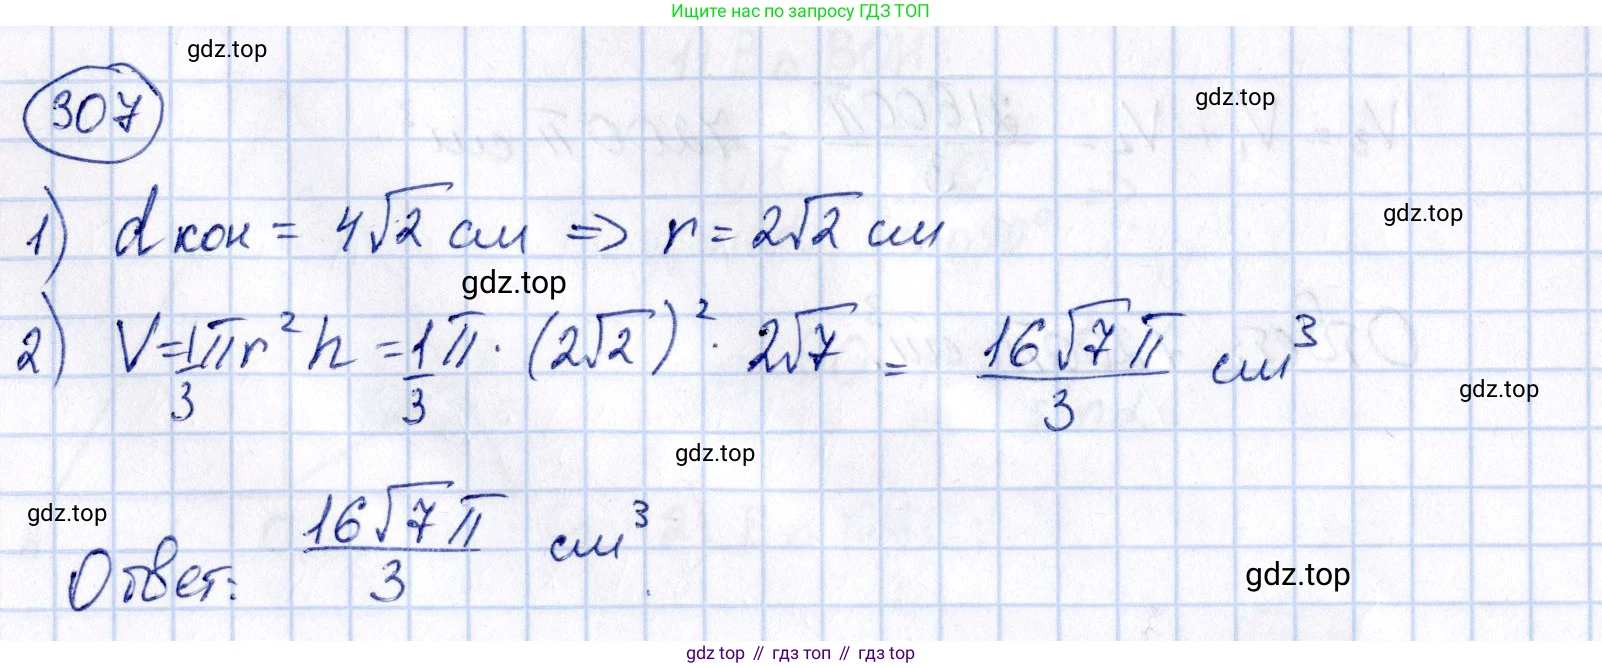 Ищите нас по запросу ГДЗ ТОП
gdz.top
307
gdz.top
1) d кон = 4√2 см => r = 2√2 см
gdz.top
gdz.top
2) V = 1/3 πr² h = 1/3 π · (2√2)² · 2√7 = 16√7π/3 см³
gdz.top
gdz.top
gdz.top
Ответ: 16√7π/3 см³
gdz.top
gdz top // гдз топ // гдз top